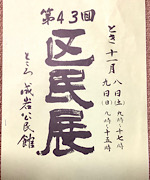 第43回
区民展
とき 十一月八日(土)九時~十七時
九日(日)九時~十五時
ところ 成岩公民館